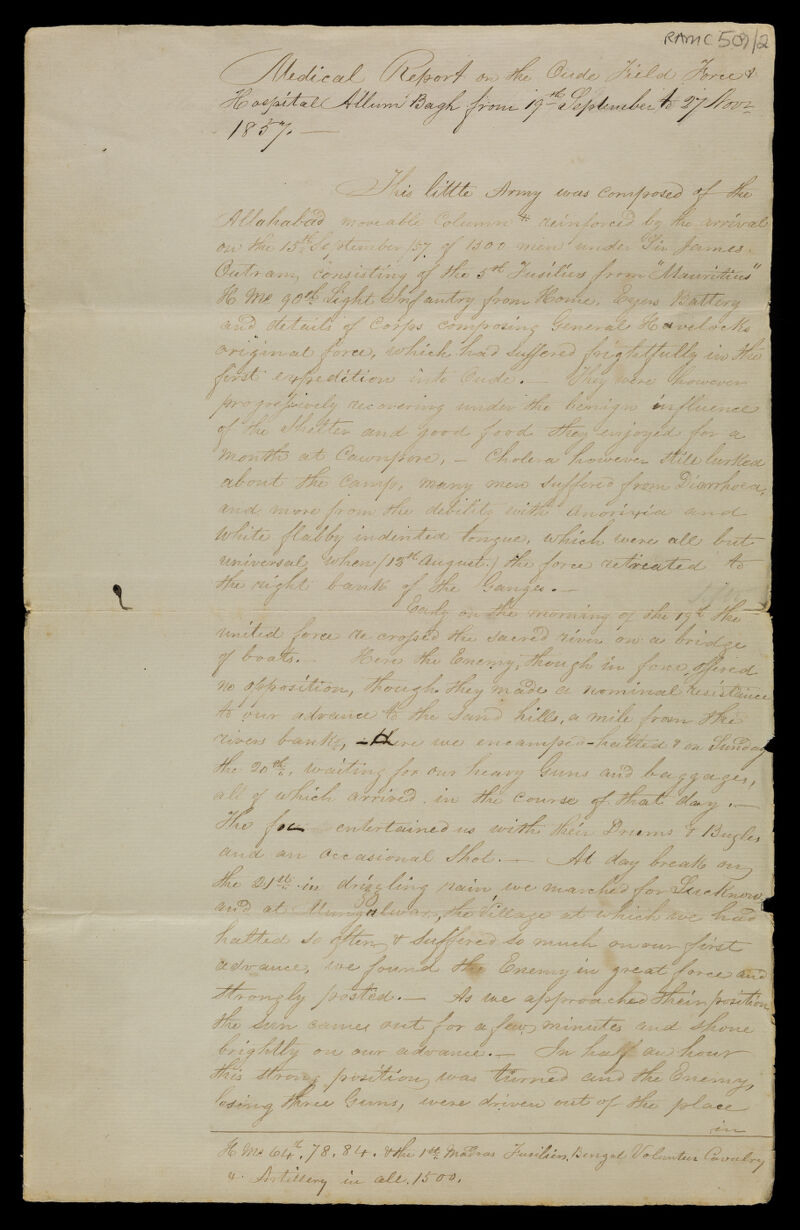 RAMC 509/2
Medical Report on the Oude Field Force &
Hospital Allum Bagh from 19th September to 27 Novr
1857. —
This little Army was composed of the
Allahabad moveable Column * reinforced by the arrival
on the 15th September 57 of 1300 men under Sir James
Outram, consisting of the 5th Fusiliers from "Mauritius"
H Ms 90th Light Infantry from Home, Eyres Battery
and details of Corps composing General Havelocks
original force, which had suffered frightfully in the
first expedition into Oude. — They were however
progressively recovering under the benign influence
of the shelter and good food they enjoyed for a
month at Cawnpore, — Cholera however still lurked
about the camp, many men suffered from Diarrhoea,
and more from the debility with anorixia and
white flabby indented tongue, which were all but
universal when (13th August) the force retreated to
the right bank of the Ganges. —
Early on the morning of the 19th the
united force re crossed the sacred river on a bridge
of boats. — Here the Enemy, though in force offered
no opposition, though they made a nominal resistance
to our advance to the sand hills, a mile from the
rivers bank, — Here we encamped – halted & on Sunday
the 20th, waiting for our heavy Guns and baggages,
all of which arrived in the course of that day. —
The foe entertained us with their Drums & Bugles
and an occasional shot. — At day break on
the 21st in drizzling rain we marched for Lucknow
and at Mungalwar, the Village at which we had
halted so often & suffered so much on our first
advance, we found the Enemy in great force and
strongly posted. — As we approached their position
the sun came out for a few minutes and shone
brightly on our advance. — In half an hour
this strong position was turned and the Enemy,
losing three Guns, were driven out of the place
in
H Ms 64th, 78. 84. & the 1st Madras Fusiliers, Bengal Volunteer Cavalry
& Artillery in all 1500.